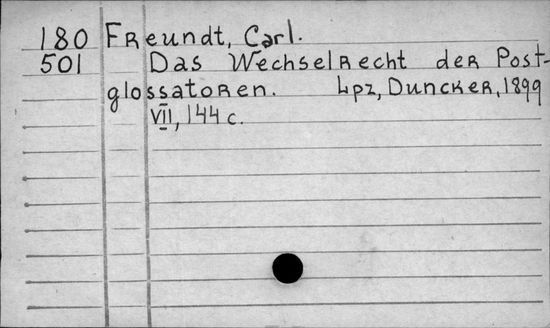 180 Freundt, Carl.
501 Das Wechselrecht der Post-
glossatoren. Lpz, Duncker, 1899
VII, 144 c.